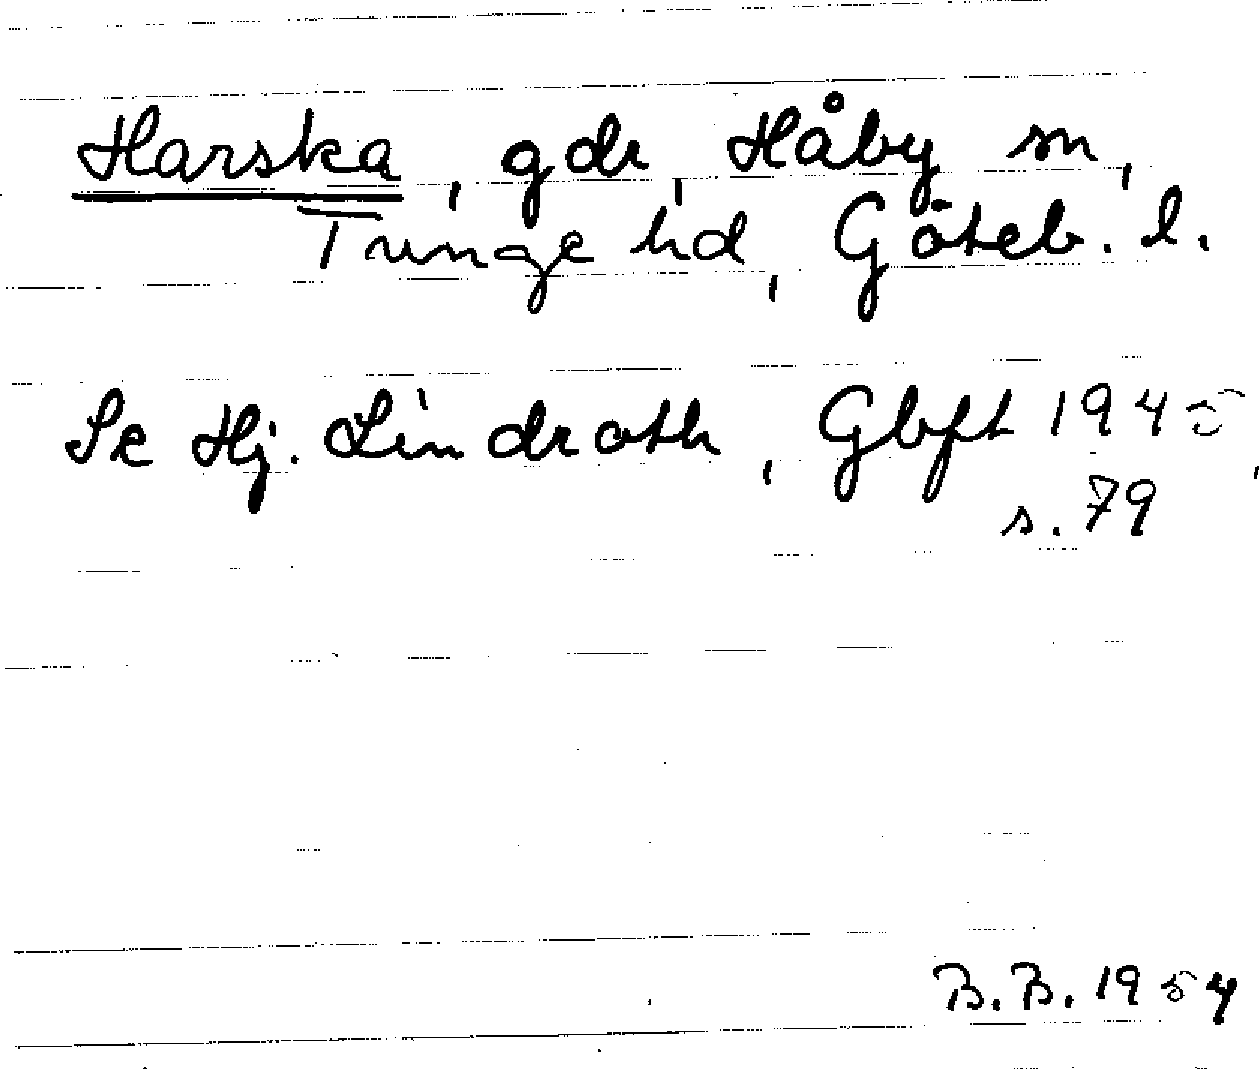 Harska, gdr, Håby sn,
Tunge hd, Göteb. l.
Se Hj. Lindroth, Gbft 1945,
s. 79
B.B. 1954